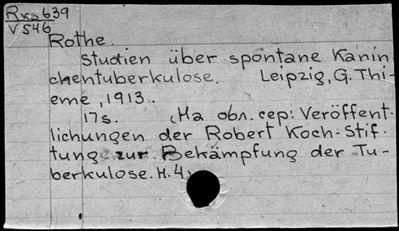 Rxs639
V546
Rothe.
Studien über spontane Kanin
chentuberkulose. Leipzig, G. Thi-
eme, 1913.
17s. (На обл. сер: Veröffent-
lichungen der Robert Koch-Stif-
tung zur Bekämpfung der Tu-
berkulose. H. 4)